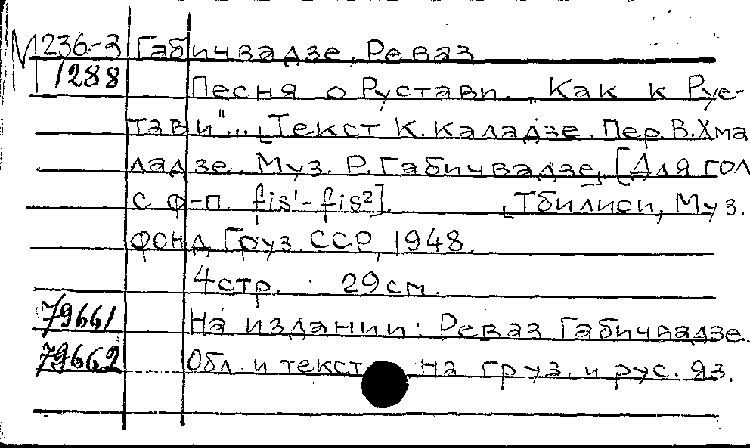 М 236-3 Габичвадзе, Реваз
1288
Песня о Рустави. "Как к Рус-
тави"... [Текст К. Каладзе. Пер. В. Хма
ладзе. Муз. Р. Габичвадзе, [Для гол
с ф-п. fis¹-fis²]. [Тбилиси, Муз.
фонд Груз. ССР, 1948.
4 стр. 29 см.
79661 На издании: Реваз Габичвадзе.
79662 Обл. и текст на груз. и рус. яз.